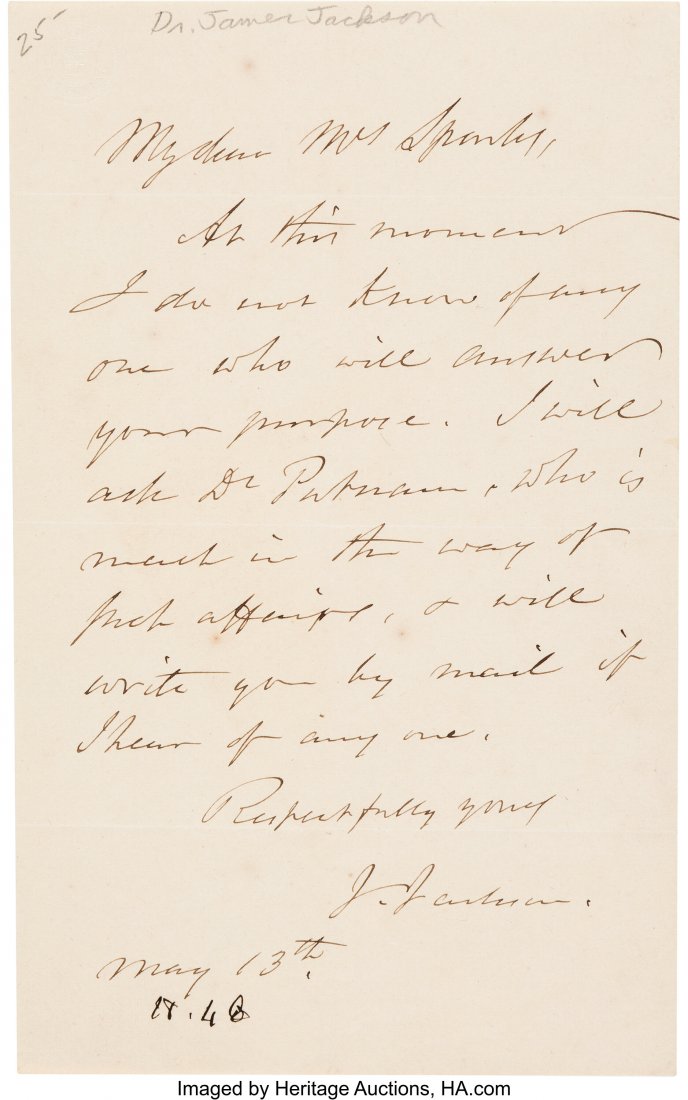 25
Dr. James Jackson
My dear Mrs Sparks,
At this moment
I do not know of any
one who will answer
your purpose. I will
ask Dr Putnam, who is
much in the way of
such affairs, & will
write you by mail if
I hear of any one.
Respectfully yours
J. Jackson.
May 13th.
Imaged by Heritage Auctions, HA.com